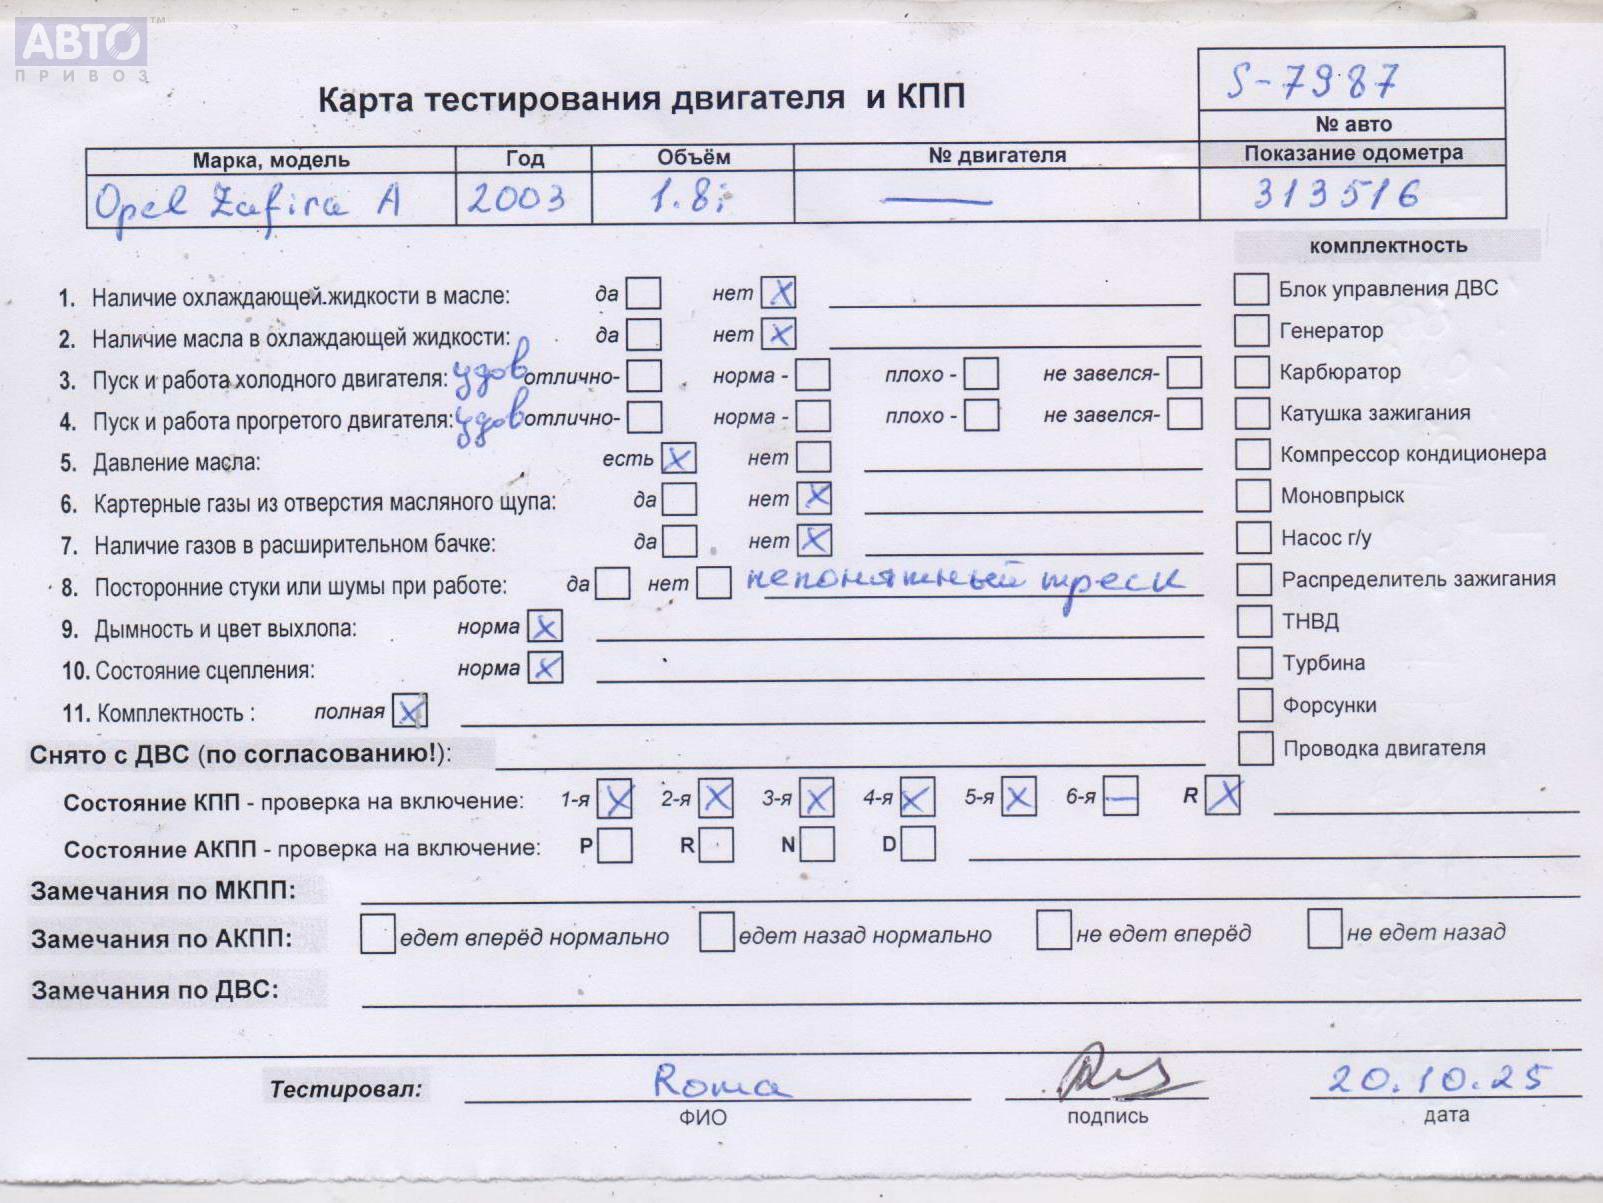 АВТО™
ПРИВОЗ
Карта тестирования двигателя и КПП
S-7987
№ авто
Марка, модель Год Объём № двигателя Показание одометра
Opel Zafira A 2003 1.8i — 313516
комплектность
1. Наличие охлаждающей жидкости в масле: да нет X
Блок управления ДВС
2. Наличие масла в охлаждающей жидкости: да нет X
Генератор
3. Пуск и работа холодного двигателя: удов отлично- норма - плохо - не завелся-
Карбюратор
4. Пуск и работа прогретого двигателя: удов отлично- норма - плохо - не завелся-
Катушка зажигания
5. Давление масла: есть X нет
Компрессор кондиционера
6. Картерные газы из отверстия масляного щупа: да нет X
Моновпрыск
7. Наличие газов в расширительном бачке: да нет X
Насос г/у
8. Посторонние стуки или шумы при работе: да нет непонятный треск
Распределитель зажигания
9. Дымность и цвет выхлопа: норма X
ТНВД
10. Состояние сцепления: норма X
Турбина
11. Комплектность : полная X
Форсунки
Снято с ДВС (по согласованию!):
Проводка двигателя
Состояние КПП - проверка на включение: 1-я X 2-я X 3-я X 4-я X 5-я X 6-я — R X
Состояние АКПП - проверка на включение: P R N D
Замечания по МКПП:
Замечания по АКПП: едет вперёд нормально едет назад нормально не едет вперёд не едет назад
Замечания по ДВС:
Тестировал: Roma 20.10.25
ФИО подпись дата